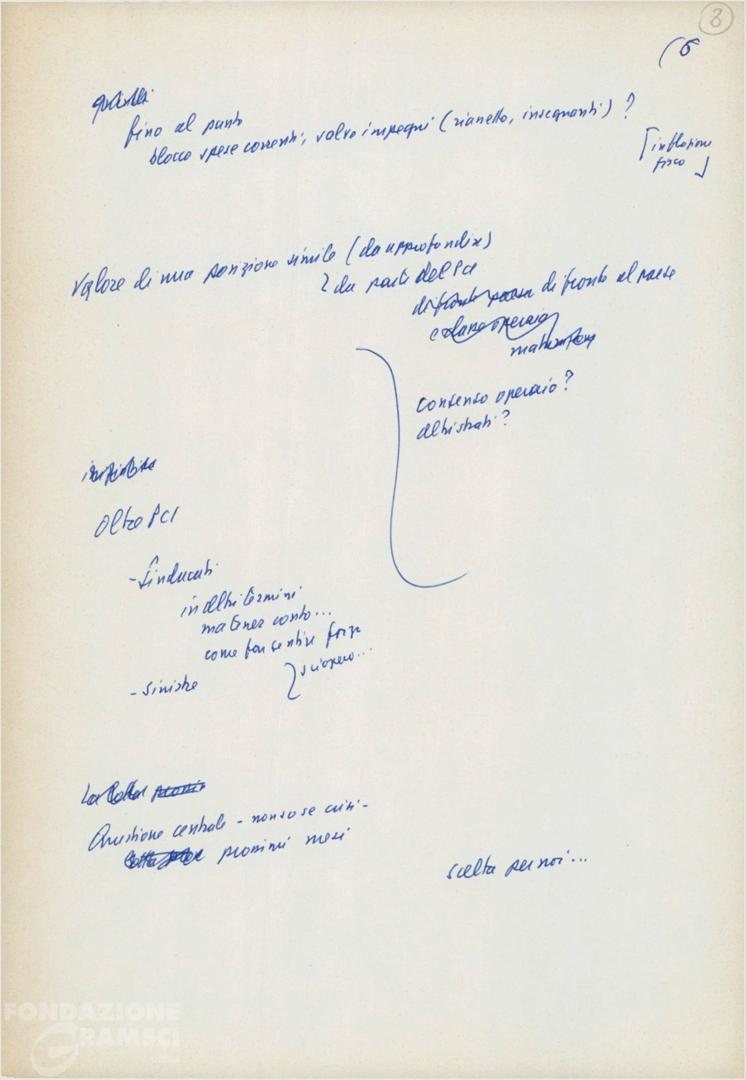 8
(6
quindi
fino al punto
blocco spese correnti, salvo impegni (rianetto, insegnanti) ?
[inflazione
fisco]
Valore di una posizione simile (da approfondire)
da parte del PCI
di fronte al paese
e classe operaia
consenso operaio?
altri strati?
iniziativa
Oltre PCI
- Sindacati
in altri termini
ma tener conto...
come far sentire forza
sciopero...
- Sinistre
La lotta prossimi
Questione centrale - non so se crisi -
prossimi mesi
scelta per noi...
FONDAZIONE
GRAMSCI